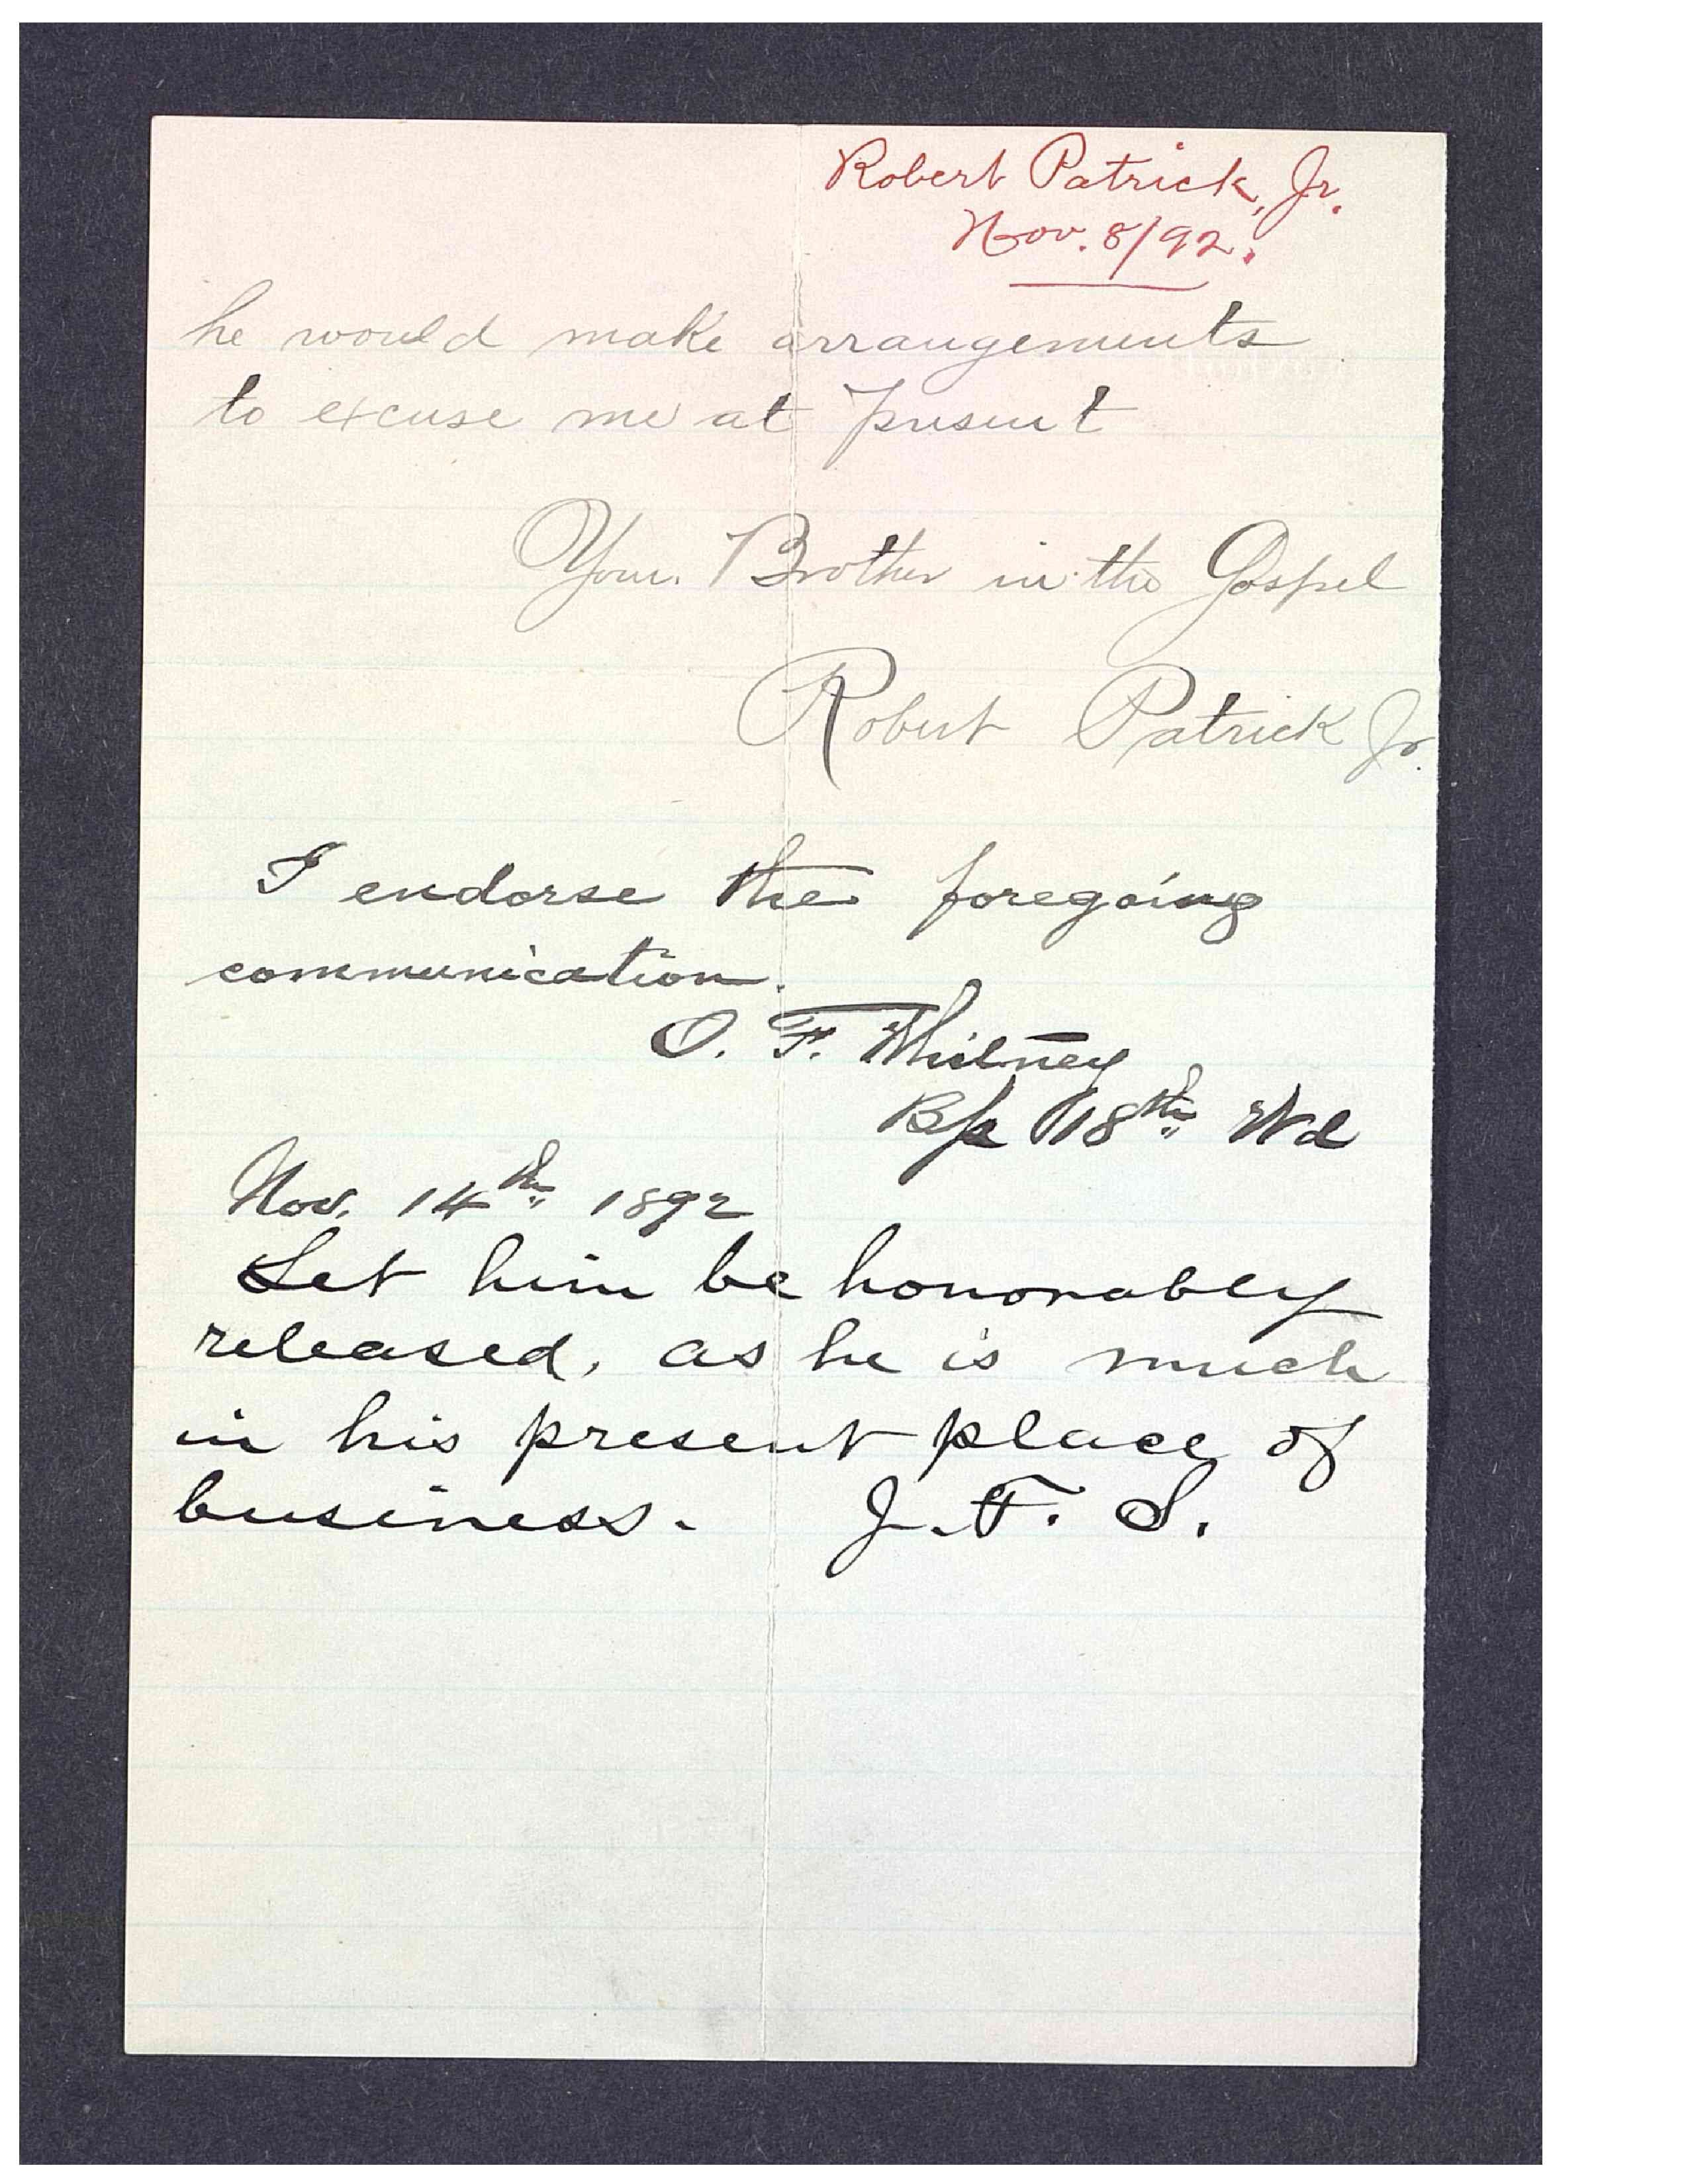 Robert Patrick, Jr.
Nov. 8/92.
he would make arrangements
to excuse me at present
Your Brother in the Gospel
Robert Patrick Jr.
I endorse the foregoing
communication.
O. F. Whitney
Bp 18th Wd
Nov. 14th 1892
Let him be honorably
released, as he is much
in his present place of
business. J. F. S.